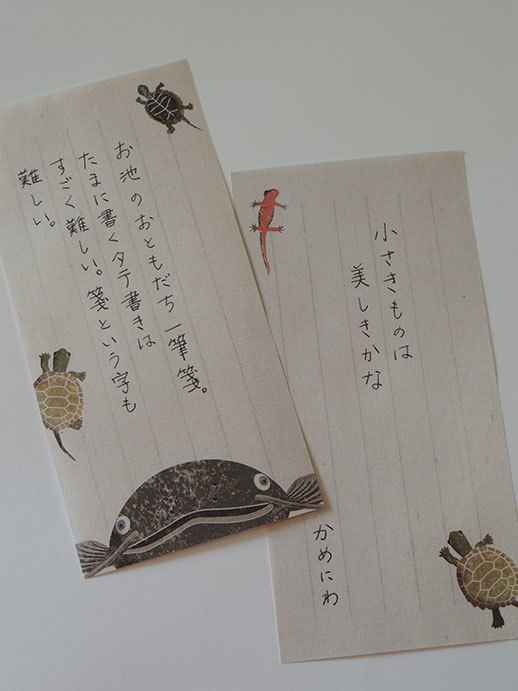 お池のおともだち一筆箋。
たまに書くタテ書きは
すごく難しい。箋という字も
難しい。
小さきものは
美しきかな
かめにわ